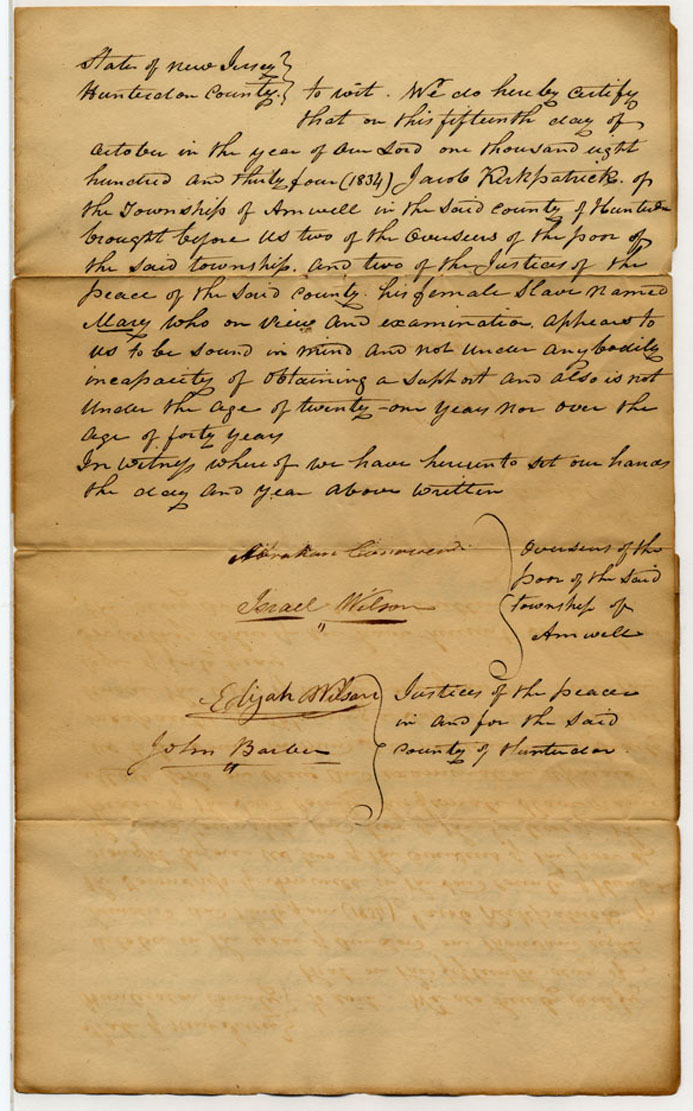 State of New Jersey
Hunterdon County. to wit. We do hereby certify
that on this fifteenth day of
October in the year of our Lord one thousand eight
hundred and thirty four (1834) Jacob Kirkpatrick. of
the Township of Amwell in the said county of Hunterdon
brought before us two of the Overseers of the poor of
the said township. and two of the Justices of the
peace of the said county. his female Slave named
Mary who on view and examination appears to
us to be sound in mind and not under any bodily
incapacity of obtaining a support and also is not
under the age of twenty-one years nor over the
age of forty years
In witness whereof we have hereunto set our hands
the day and year above written
Abraham
Overseers of the
poor of the said
township of
Amwell
Israel Wilson
Elijah Wilson
John Barber
Justices of the peace
in and for the said
county of Hunterdon.